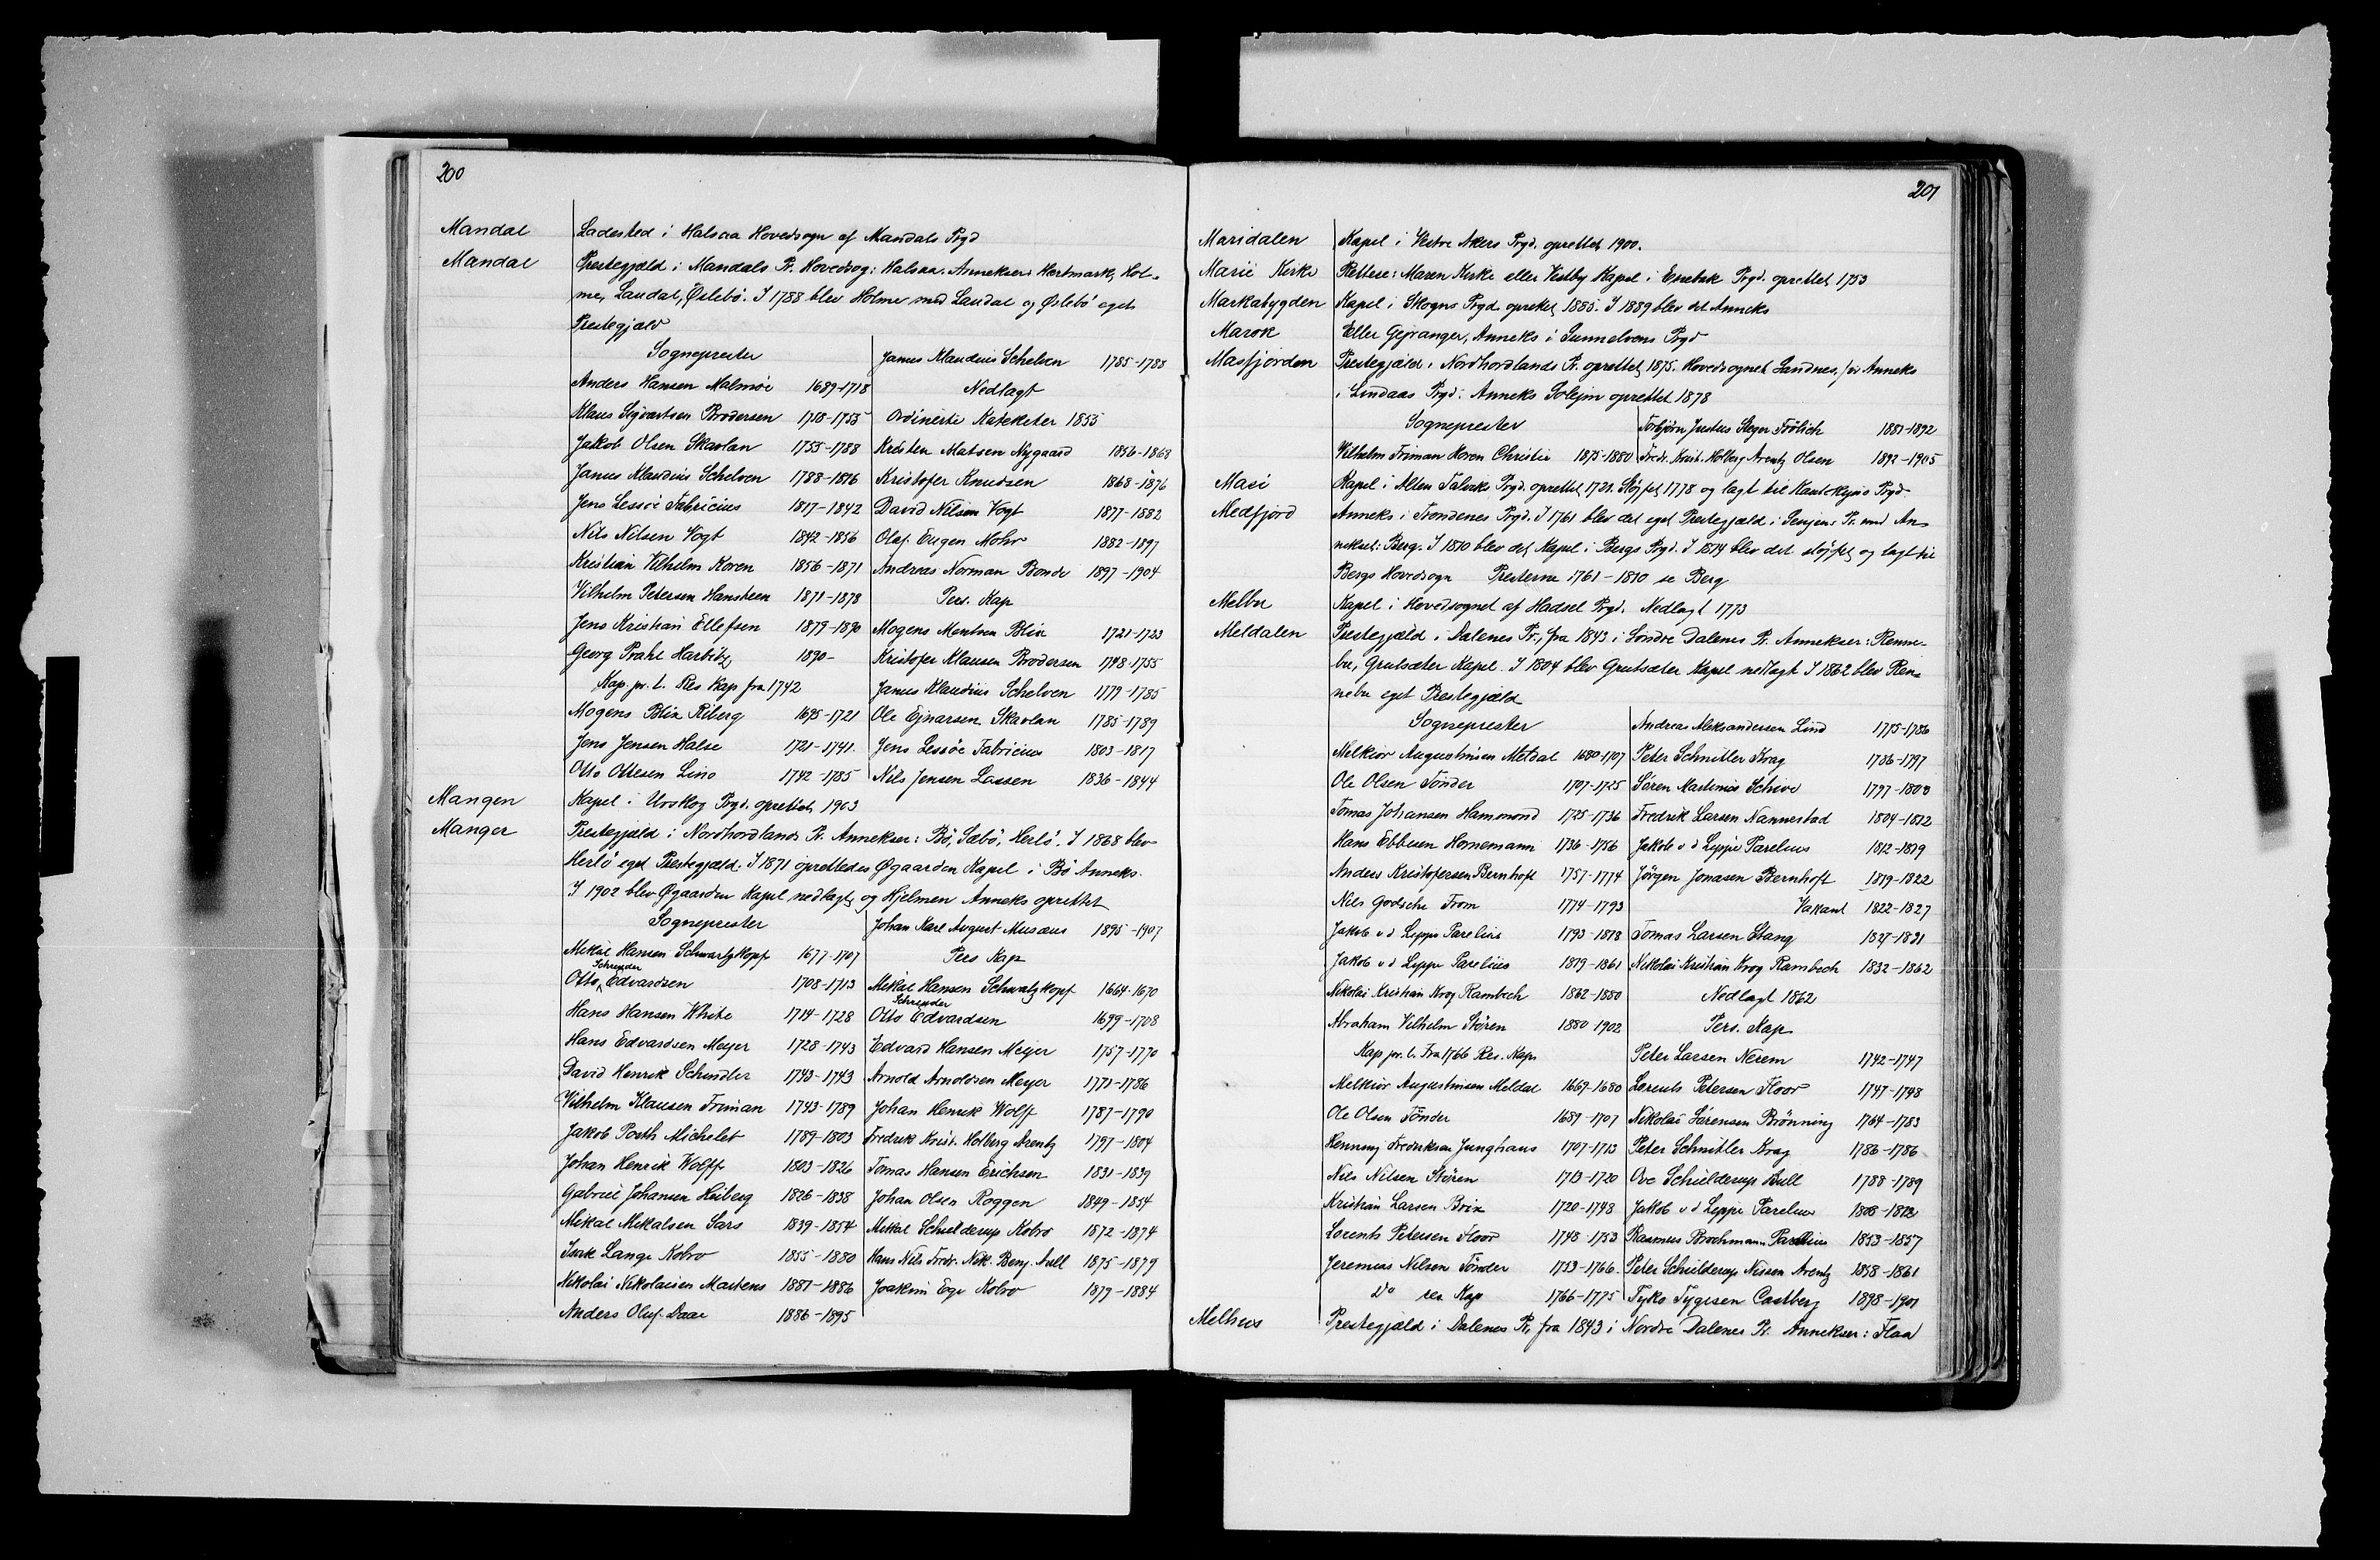 200
Mandal Ladested i Halsaa Hovedsogn af Mandals Pgd
Mandal Prestegjæld i Mandals Pr. Hovedsog: Halsaa. Annekser: Hartmark, Hol-
me, Laudal, Øslebö. I 1788 blev Holme med Laudal og Øslebö eget
Prestegjæld
Sogneprester
Anders Hansen Malmöe 1689-1718
Klaus Sigvartsen Brodersen 1718-1755
Jakob Olsen Skavlan 1755-1788
Janus Klaudius Schelven 1788-1816
Jens Lessöe Fabricius 1817-1842
Nils Nilsen Vogt 1842-1856
Kristian Vilhelm Koren 1856-1871
Vilhelm Petersen Hansteen 1871-1878
Jens Kristian Ellefsen 1879-1890
Georg Prahl Harbitz 1890-
Kap. pr. l. Res Kap fra 1742
Mogens Blix Riberg 1695-1721
Jens Jensen Halse 1721-1741
Otto Ottesen Lino 1742-1785
Janus Klaudius Schelven 1785-1788
Nedlagt
Ordinerte Kateketer 1855
Kristen Matsen Nygaard 1856-1868
Kristofer Knudsen 1868-1876
David Nilsen Vogt 1877-1882
Olaf Eugen Mohr 1882-1897
Andreas Norman Bonde 1897-1904
Pers. Kap
Mogens Mentsen Blix 1721-1723
Kristofer Klausen Brodersen 1748-1755
Janus Klaudius Schelven 1779-1785
Ole Ejnarsen Skavlan 1785-1789
Jens Lessöe Fabricius 1803-1817
Nils Jensen Lassen 1836-1844
Mangen Kapel i Urskog Pgd. oprettet 1903
Manger Prestegjæld i Nordhordlands Pr. Annekser: Bö, Sæbö, Herlö. I 1868 blev
Herlö eget Prestegjæld. I 1871 oprettedes Øgaarden Kapel i Bö Anneks.
I 1902 blev Øgaarden Kapel nedlagt og Hjelmen Anneks oprettet
Sogneprester
Mikal Hansen Schwartzkopf 1677-1707
Otto Schreuder Edvardsen 1708-1713
Hans Hansen White 1714-1728
Hans Edvardsen Meyer 1728-1743
David Henrik Schindler 1743-1743
Vilhelm Klausen Friman 1743-1789
Jakob Posth Michelet 1789-1803
Johan Henrik Wolff 1803-1826
Gabriel Johansen Heiberg 1826-1838
Mikal Mikalsen Sars 1839-1854
Isak Lange Kobro 1855-1880
Nikolai Nikolaisen Martens 1881-1886
Anders Oluf Daae 1886-1895
Johan Karl August Musæus 1895-1907
Pers Kap
Mikal Hansen Schwatzkopf 1664-1670
Otto Schreuder Edvardsen 1699-1708
Edvard Hansen Meyer 1757-1770
Arnold Arnoldsen Meyer 1771-1786
Johan Henrik Wolff 1787-1790
Fredrik Krist. Holberg Arentz 1797-1804
Tomas Hansen Erichsen 1831-1839
Johan Olsen Roggen 1849-1854
Mikal Schielderup Kobro 1872-1874
Hans Nils Fredr. Nik. Benj. Aall 1875-1879
Joakim Ege Kobro 1879-1884
201
Maridalen Kapel i Vestre Akers Pgd. oprettet 1900.
Marie Kirke Rettere: Maren Kirke eller Vestby Kapel i Enebak Pgd. oprettet 1753
Markabygden Kapel i Skogns Pgd. oprettet 1885. I 1889 blev det Anneks
Marok Eller Gejranger, Anneks i Sunnelvens Pgd
Masfjorden Prestegjæld i Nordhordlands Pr. oprettet 1875. Hovedsognet Sandnes, før Anneks
i Lindaas Pgd. Anneks Solejm oprettet 1878
Sogneprester
Vilhelm Friman Koren Christie 1875-1880
Torbjörn Justus Steger Frölich 1881-1892
Fredr. Krist. Holberg Arentz Olsen 1892-1905
Masi Kapel i Alten Talviks Pgd. oprettet 1721. Slöjfet 1778 og lagt til Kautokejno Pgd.
Medfjord Anneks i Trondenes Pgd. I 1761 blev det eget Prestegjæld i Senjens Pr. med An-
nekset: Berg. I 1810 blev det Kapel i Bergs Pgd. I 1814 blev det slöjfet og lagt til
Bergs Hovedsogn Presterne 1761-1810 se Berg
Melbu Kapel i Hovedsognet af Hadsel Pgd. Nedlagt 1773
Meldalen Prestegjæld i Dalenes Pr., fra 1843 i Söndre Dalenes Pr. Annekser: Renne-
bu, Grutsæter Kapel. I 1804 blev Grutsæter Kapel nedlagt. I 1862 blev Ren-
nebu eget Prestegjæld
Sogneprester
Melkior Augustinsen Meldal 1680-1707
Ole Olsen Tönder 1707-1725
Tomas Johansen Hammond 1725-1736
Hans Ebbesen Hornemann 1736-1756
Anders Kristofersen Bernhoft 1757-1774
Nils Godsche From 1774-1793
Jakob v d Lippe Parelius 1793-1818
Jakob v d Lippe Parelius 1819-1861
Nikolai Kristian Krog Rambech 1862-1880
Abraham Vilhelm Stören 1880-1902
Kap pr. l. Fra 1766 Res. Kap.
Melkior Augustinsen Meldal 1669-1680
Ole Olsen Tönder 1689-1707
Henning Fredriksen Junghans 1707-1713
Nils Nilsen Stören 1713-1720
Kristian Larsen Brix 1720-1748
Lorents Petersen Floor 1748-1753
Jeremias Nilsen Tönder 1753-1766
Do res Kap 1766-1775
Andreas Aleksandersen Lind 1775-1786
Peter Schnitler Krag 1786-1797
Sören Martinius Schive 1797-1803
Fredrik Larsen Nannestad 1804-1812
Jakob v d Lippe Parelius 1812-1819
Jörgen Jonasen Bernhoft 1819-1822
Vakant 1822-1827
Tomas Larsen Stang 1827-1831
Nikolai Kristian Krog Rambech 1832-1862
Nedlagt 1862
Pers. Kap
Peter Larsen Nerem 1742-1747
Lorents Petersen Floor 1747-1748
Nikolai Sörensen Brönning 1764-1783
Peter Schnitler Krag 1786-1786
Ove Schielderup Bull 1788-1789
Jakob v d Lippe Parelius 1808-1812
Rasmus Brochmann Parelius 1853-1857
Peter Schielderup Nissen Arentz 1858-1861
Tyko Tygesen Castberg 1898-1901
Melhus Prestegjæld i Dalenes Pr., fra 1843 i Nordre Dalenes Pr. Annekser: Flaa